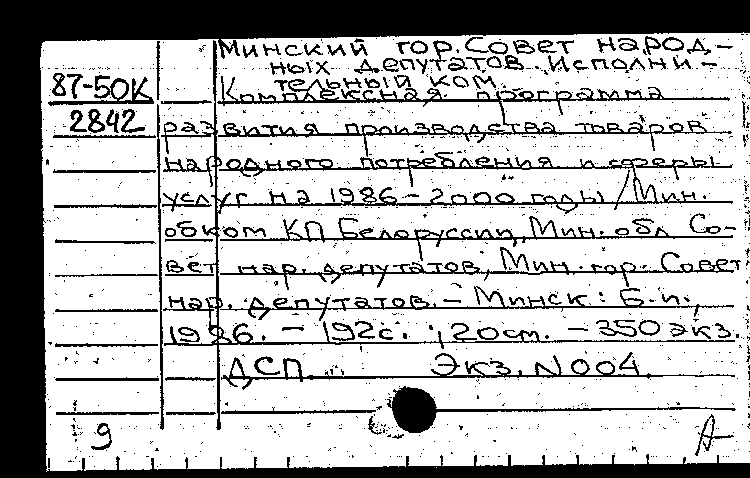 Минский гор. Совет народ-
ных депутатов. Исполни-
тельный ком.
87-50К
Комплексная программа
2842
развития производства товаров
народного потребления и сферы
услуг на 1986-2000 годы / Мин.
обком КП Белоруссии, Мин. обл. Со-
вет нар. депутатов, Мин. гор. Совет
нар. депутатов. - Минск : Б.и.,
1986. - 192с. ; 20см. - 350 экз.
ДСП. Экз. N 004.
9 А-